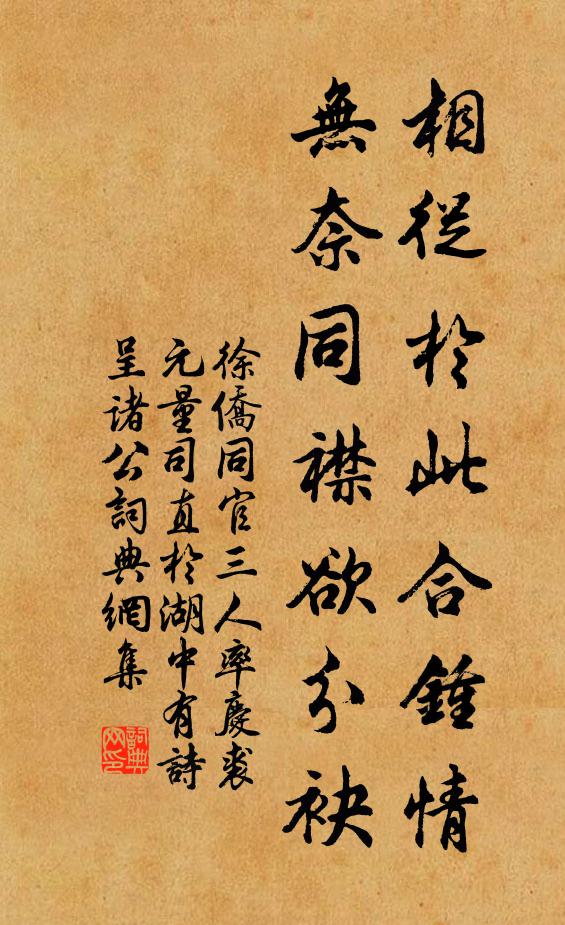 相從於此合鍾情
無奈同襟欲分袂
徐僑同官三人率慶裘
元量司直於湖中有詩
呈诸公詞典網集
詞典网印